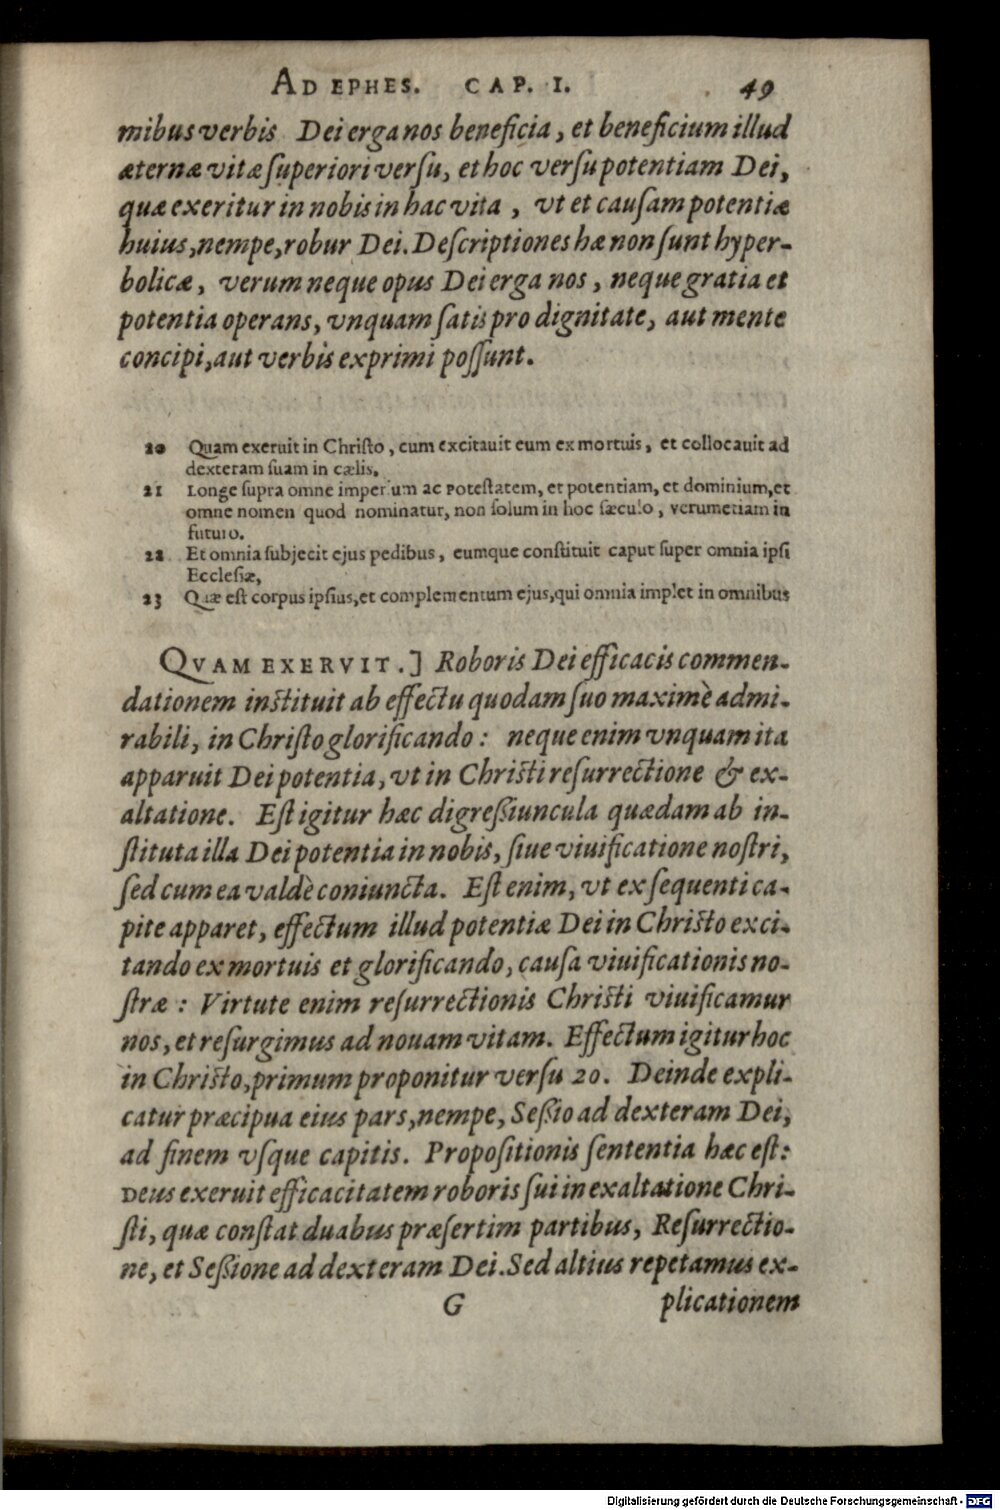 AD EPHES. CAP. I. 49
mibus verbis Dei erga nos beneficia, et beneficium illud
æternæ vitæ superiori versu, et hoc versu potentiam Dei,
quæ exeritur in nobis in hac vita, vt et causam potentiæ
huius, nempe, robur Dei. Descriptiones hæ non sunt hyper-
bolicæ, verum neque opus Dei erga nos, neque gratia et
potentia operans, vnquam satis pro dignitate, aut mente
concipi, aut verbis exprimi possunt.
20 Quam exeruit in Christo, cum excitauit eum ex mortuis, et collocauit ad
dexteram suam in cælis.
21 Longe supra omne imperium ac potestatem, et potentiam, et dominium, et
omne nomen quod nominatur, non solum in hoc sæculo, verumetiam in
futuro.
22 Et omnia subjecit ejus pedibus, eumque constituit caput super omnia ipsi
Ecclesiæ,
23 Quæ est corpus ipsius, et complementum ejus, qui omnia implet in omnibus
QVAM EXERVIT.] Roboris Dei efficacis commen-
dationem instituit ab effectu quodam suo maximè admi-
rabili, in Christo glorificando: neque enim vnquam ita
apparuit Dei potentia, vt in Christi resurrectione & ex-
altatione. Est igitur hæc digressiuncula quædam ab in-
stituta illa Dei potentia in nobis, siue viuificatione nostri,
sed cum ea valdè coniuncta. Est enim, vt ex sequenti ca-
pite apparet, effectum illud potentiæ Dei in Christo exci-
tando ex mortuis et glorificando, causa viuificationis no-
stræ: Virtute enim resurrectionis Christi viuificamur
nos, et resurgimus ad nouam vitam. Effectum igitur hoc
in Christo, primum proponitur versu 20. Deinde expli-
catur præcipua eius pars, nempe, Sessio ad dexteram Dei,
ad finem vsque capitis. Propositionis sententia hæc est:
Deus exeruit efficacitatem roboris sui in exaltatione Chri-
sti, quæ constat duabus præsertim partibus, Resurrectio-
ne, et Sessione ad dexteram Dei. Sed altius repetamus ex-
G plicationem
Digitalisierung gefördert durch die Deutsche Forschungsgemeinschaft - DFG